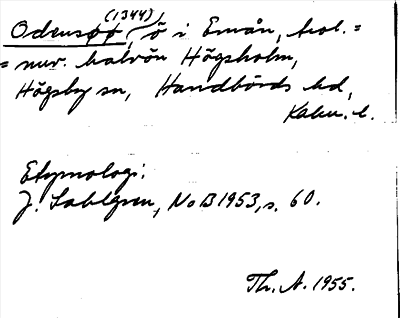 Odensøø, (1344) ö i Emån, hol.=
= nur. halvön Högsholm,
Högsby sn, Handbörds hd,
Kalm. l.
Etymologi:
J. Sahlgren, NoB 1953, s. 60.
Th. A. 1955.